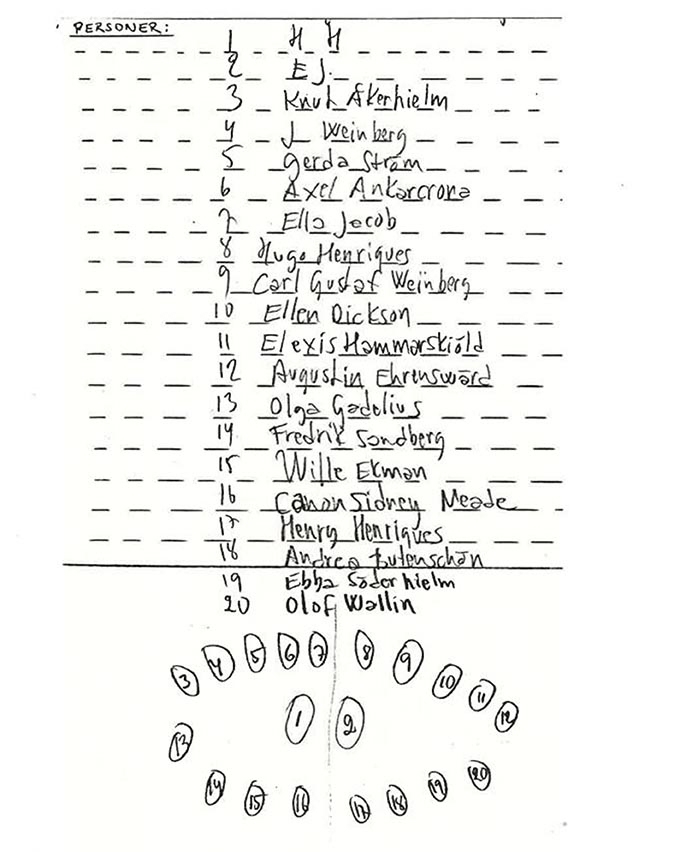 PERSONER:
1 H H
2 E J.
3 Knut Åkerhielm
4 J Weinberg
5 Gerda Ström
6 Axel Ankarcrona
7 Ella Jacob
8 Hugo Henriques
9 Carl Gustaf Weinberg
10 Ellen Dickson
11 Elexis Hammarskiöld
12 Augustin Ehrensvärd
13 Olga Gadolius
14 Fredrik Sandberg
15 Wille Ekman
16 Canon Sidney Meade
17 Henry Henriques
18 Andrea Butenschön
19 Ebba Söderhielm
20 Olof Wallin
3 4 5 6 7 8 9 10 11 12
1 2
13
14 15 16 17 18 19 20